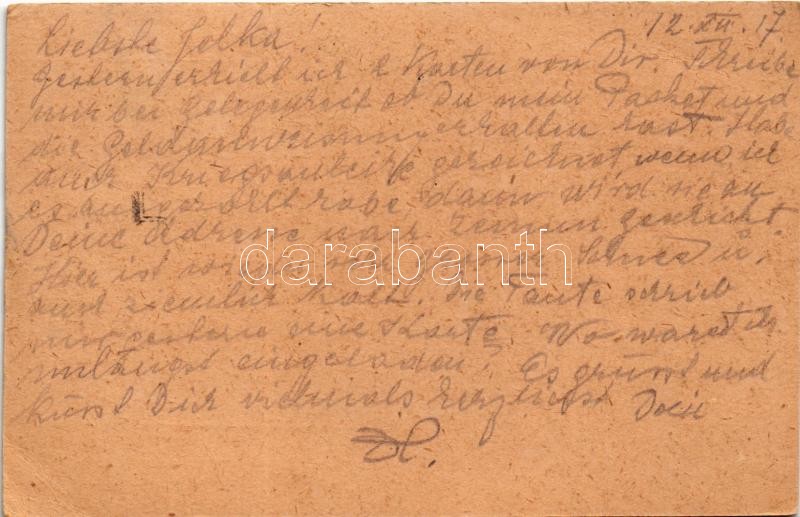 12. XII. 17
Liebste Jolka!
Gestern erhielt ich 2 Karten von Dir. Schreibe
mir bei Gelegenheit ob Du mein Packet und
die Geldanweisung erhalten hast. Habe
auch Kriegsanleihe gezeichnet wenn ich
es ausgezahlt habe dann wird sie an
Deine Adresse nach Zemun geschickt.
Hier ist wieder Schnee u.
und ziemlich kalt. Die Tante schrieb
mir gestern eine Karte. Wo waret ihr
unlängst eingeladen? Es grüsst und
küsst Dich vielmals herzlichst Dein
darabanth